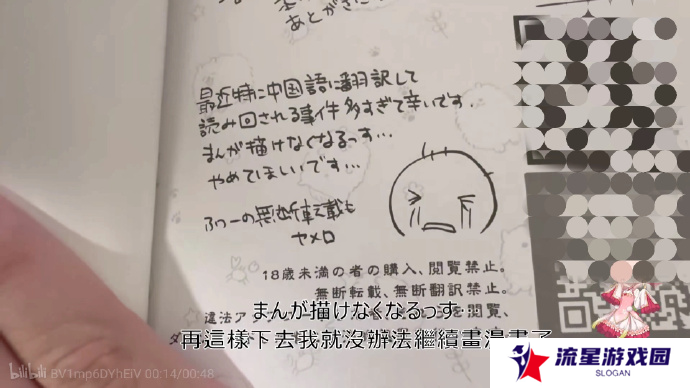 あとがきに
最近特に中国語に翻訳して
読み回される事件多すぎて辛いです.
まんが描けなくなるっす…
やめてほしいです…
ふつーの無断転載も
ヤメロ
18歳未満の者の購入、閲覧禁止。
無断転載、無断翻訳禁止。
違法ア
を閲覧、
まんが描けなくなるっす…
再這樣下去我就沒辦法繼續畫漫畫了
bilibili BV1mp6DYhEiV 00:14/00:48
流星游戏园
SLOGAN